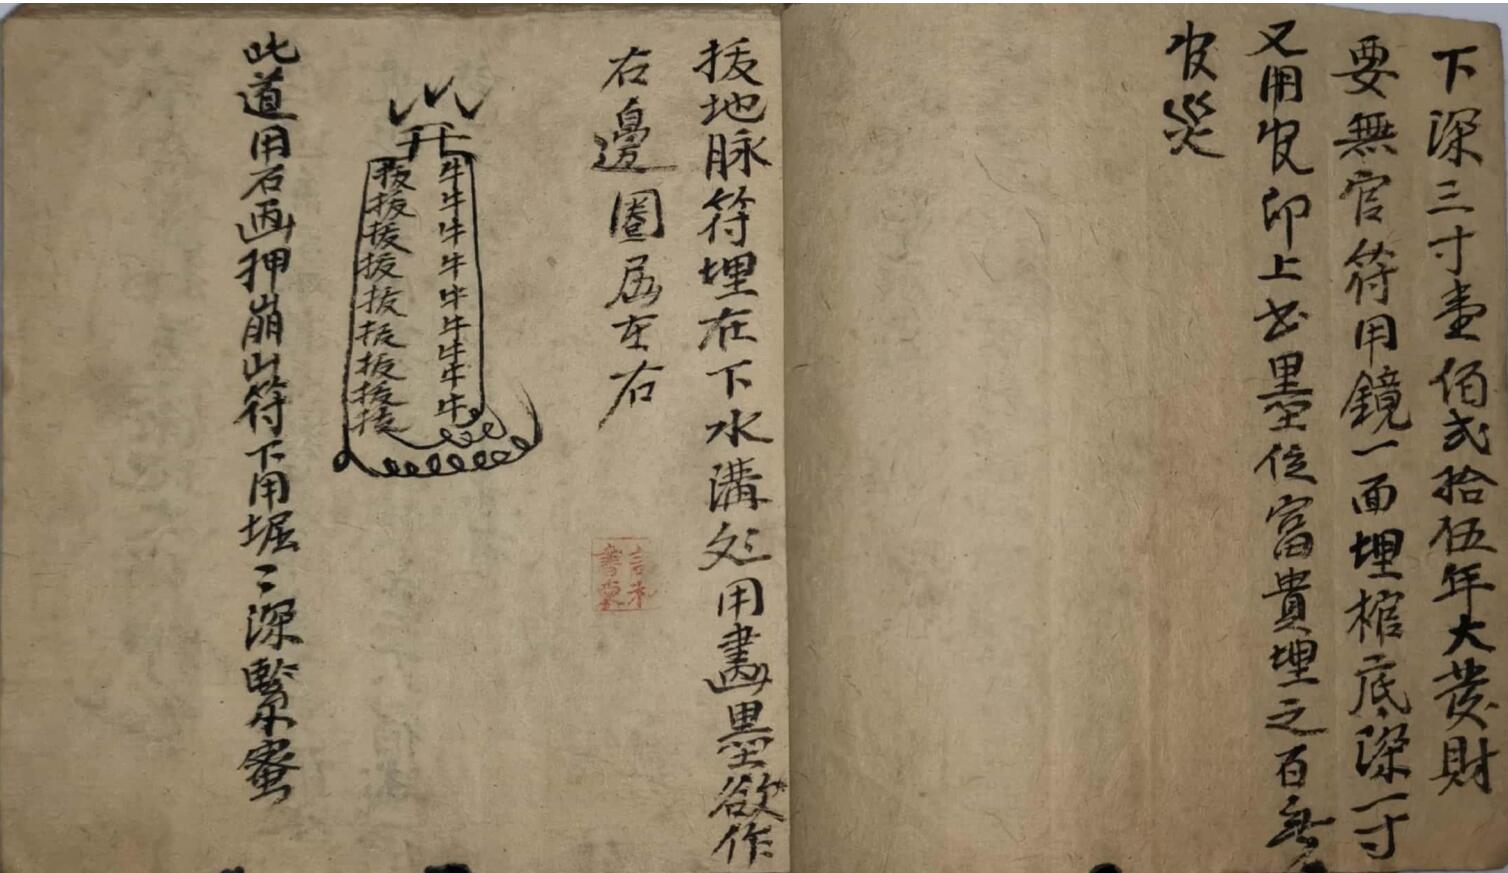 下深三寸壹佰式拾伍年大發財
要無官符用鏡一面埋棺底深一寸
又用皮印上书墨位富貴埋之百無
皮災
拔地脉符埋在下水溝処用畫墨欲作
右邊圈居左右
牛牛牛牛牛牛牛牛牛
拔拔拔拔拔拔拔拔拔
此道用石画押崩山符下用堀〻深緊蜜